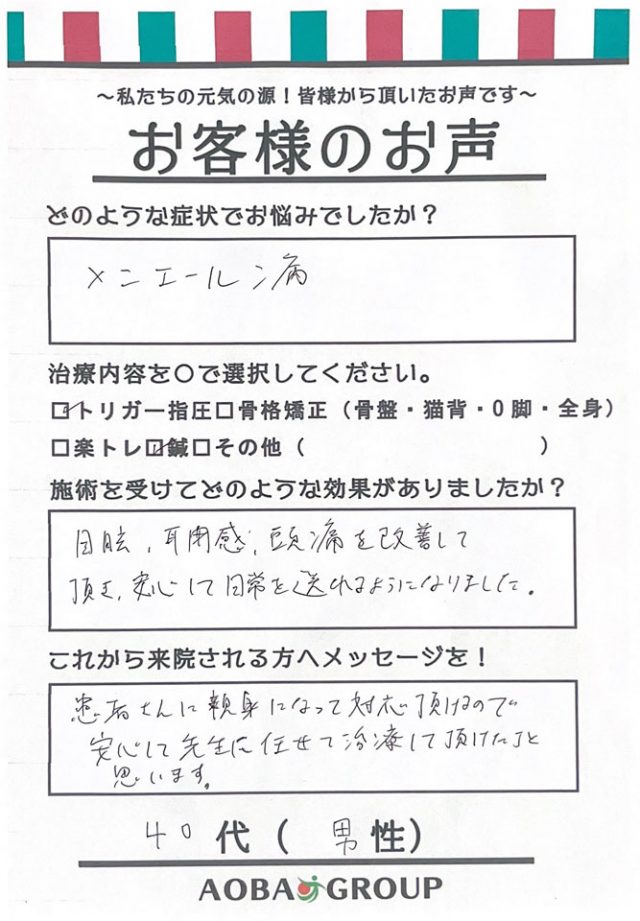 ～私たちの元気の源！皆様から頂いたお声です～
お客様のお声
どのような症状でお悩みでしたか？
メニエールン病
治療内容を〇で選択してください。
☑トリガー指圧□骨格矯正（骨盤・猫背・O脚・全身）
□楽トレ☑鍼□その他（　　　　　　　　　　）
施術を受けてどのような効果がありましたか？
目眩、耳閉感、頭痛を改善して
頂き、安心して日常を送れるようになりました。
これから来院される方へメッセージを！
患者さんに親身になって対応頂けるので
安心して先生に任せて治療して頂けたと
思います。
40代（男性）
AOBA GROUP